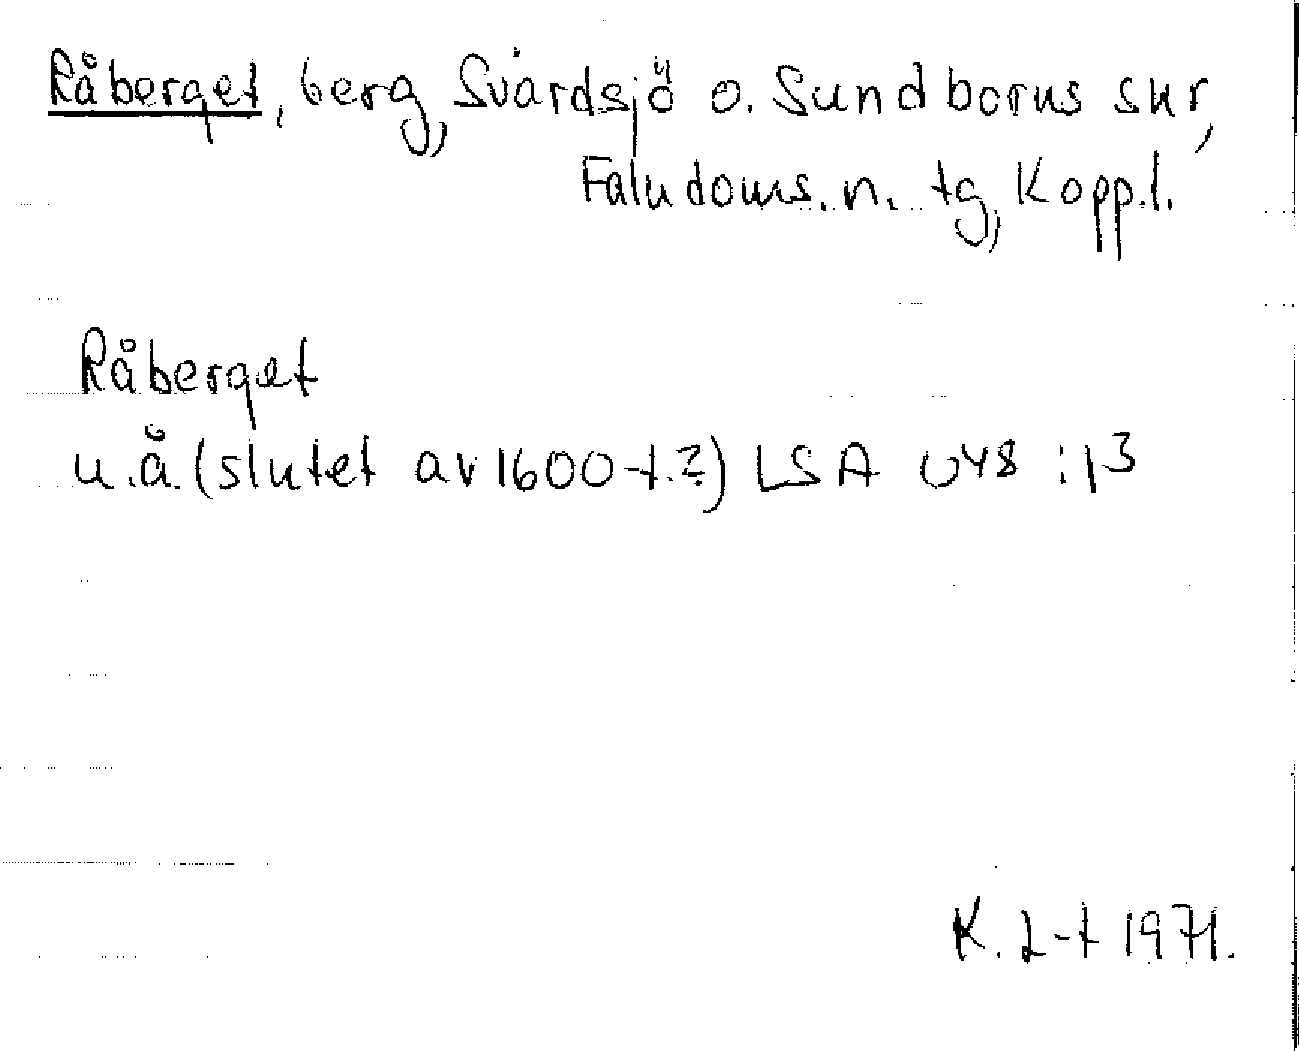 Råberget, berg, Svärdsjö o. Sundborns snr,
Faludoms. n. tg, Kopp.l.
Råberget
u.å. (slutet av 1600-t.?) LSA U48:13
K. L-t 1971.